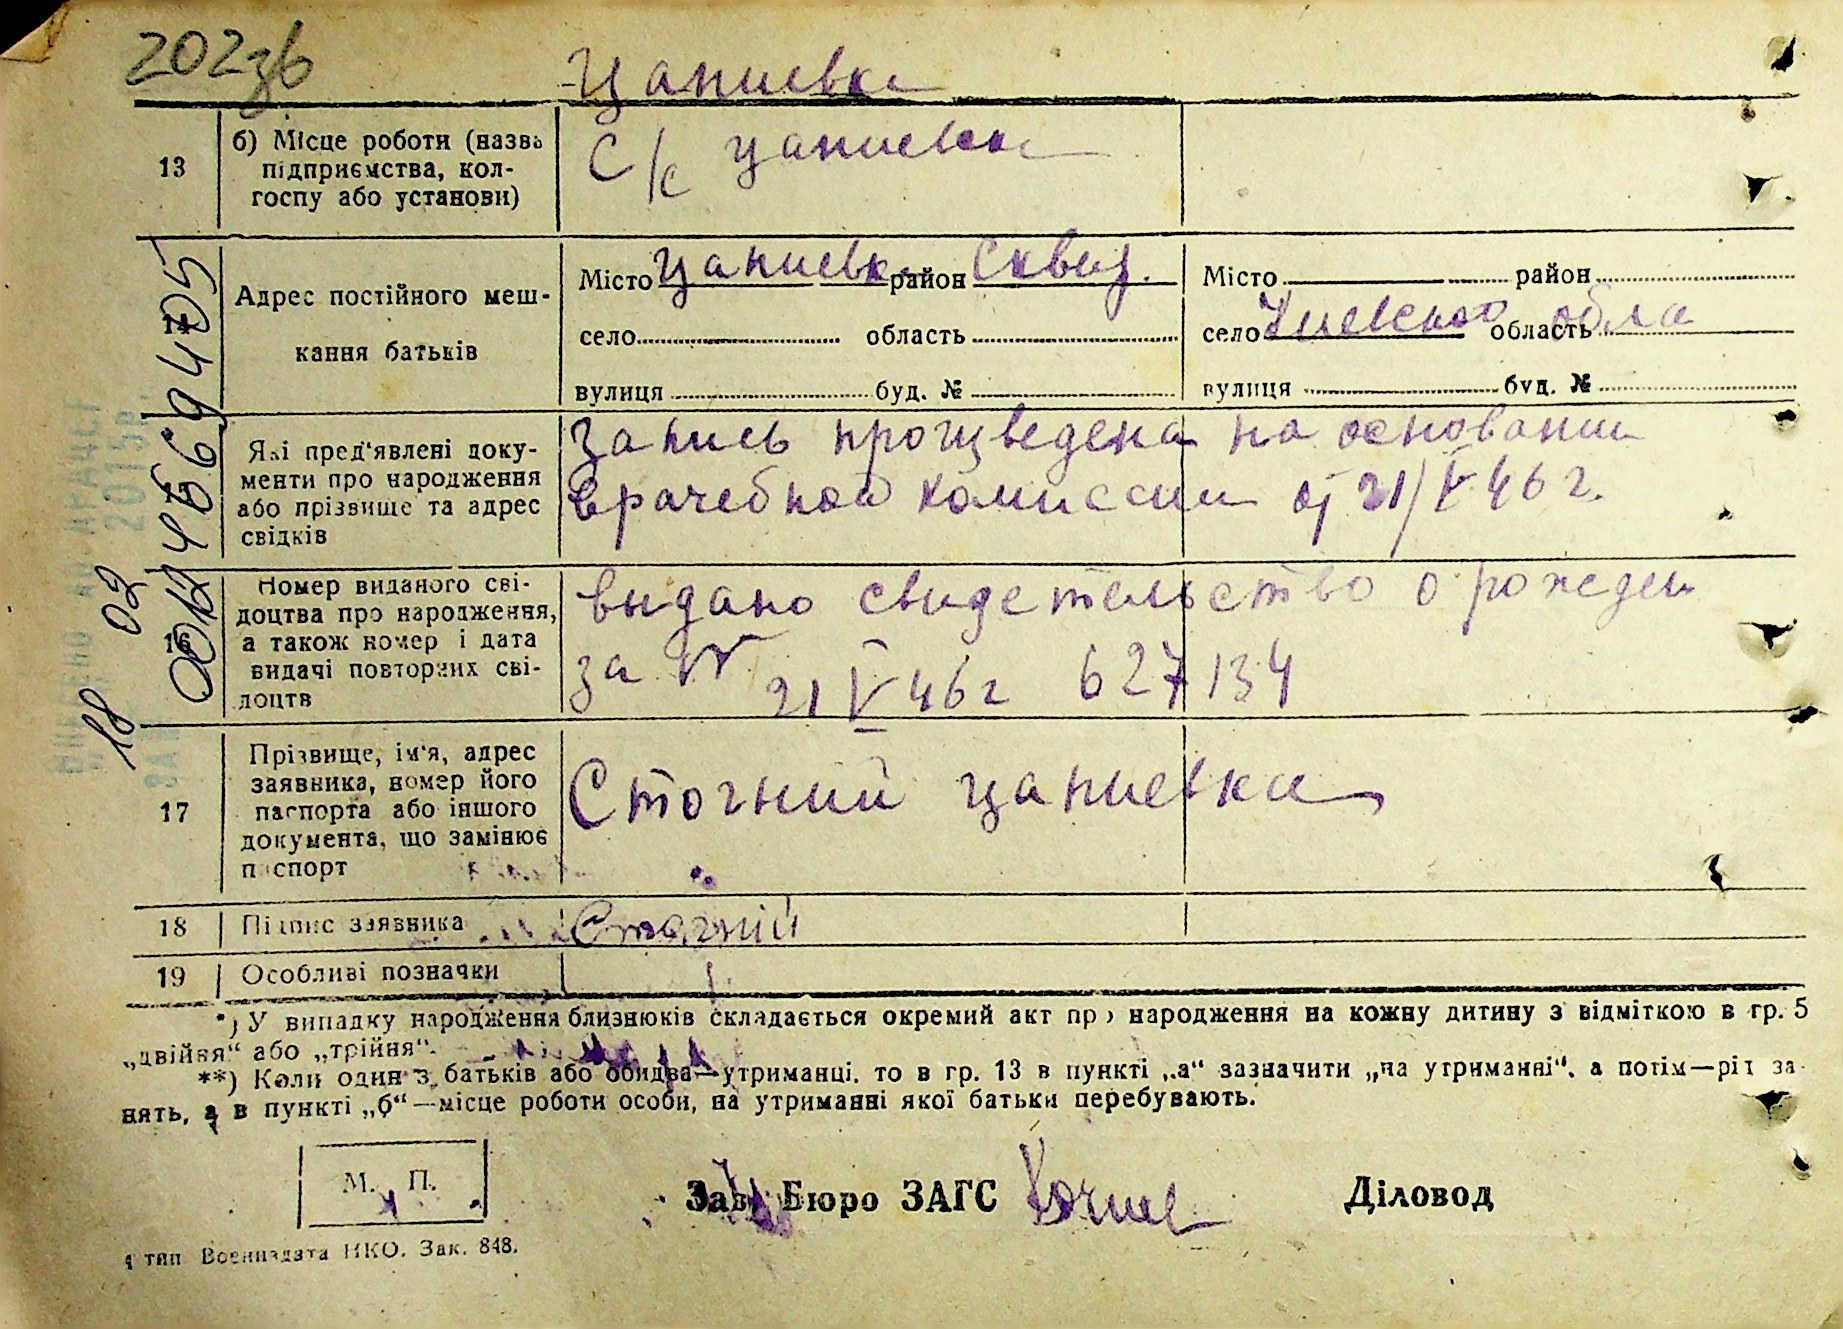 202зв
Цапиевка
13
б) Місце роботи (назва
підприємства, кол-
госпу або установи)
С/с Цапиевка
Адрес постійного меш-
кання батьків
Місто Цапиевка район Сквир.
село область
вулиця буд. №
Місто район
село Киевской область обла
вулиця буд. №
Які пред'явлені доку-
менти про народження
або прізвище та адрес
свідків
Запись произведена на основании
врачебной комиссии от 21/V 46 г.
16
Номер виданого сві-
доцтва про народження,
а також номер і дата
видачі повторних сві-
доцтв
выдано свидетельство о рожден
за №
21 V 46 г 627134
17
Прізвище, ім'я, адрес
заявника, номер його
паспорта або іншого
документа, що замінює
паспорт
Стогний Цапиевка
18
Підпис заявника
Стогній
19
Особливі позначки
*) У випадку народження близнюків складається окремий акт про народження на кожну дитину з відміткою в гр. 5
„двійня“ або „трійня“.
**) Коли один з батьків або обидва—утриманці, то в гр. 13 в пункті „а“ зазначити „на утриманні“, а потім—рід за-
нять, а в пункті „б“—місце роботи особи, на утриманні якої батьки перебувають.
М. П.
Зав. Бюро ЗАГС
Діловод
тип Воениздата НКО. Зак. 848.